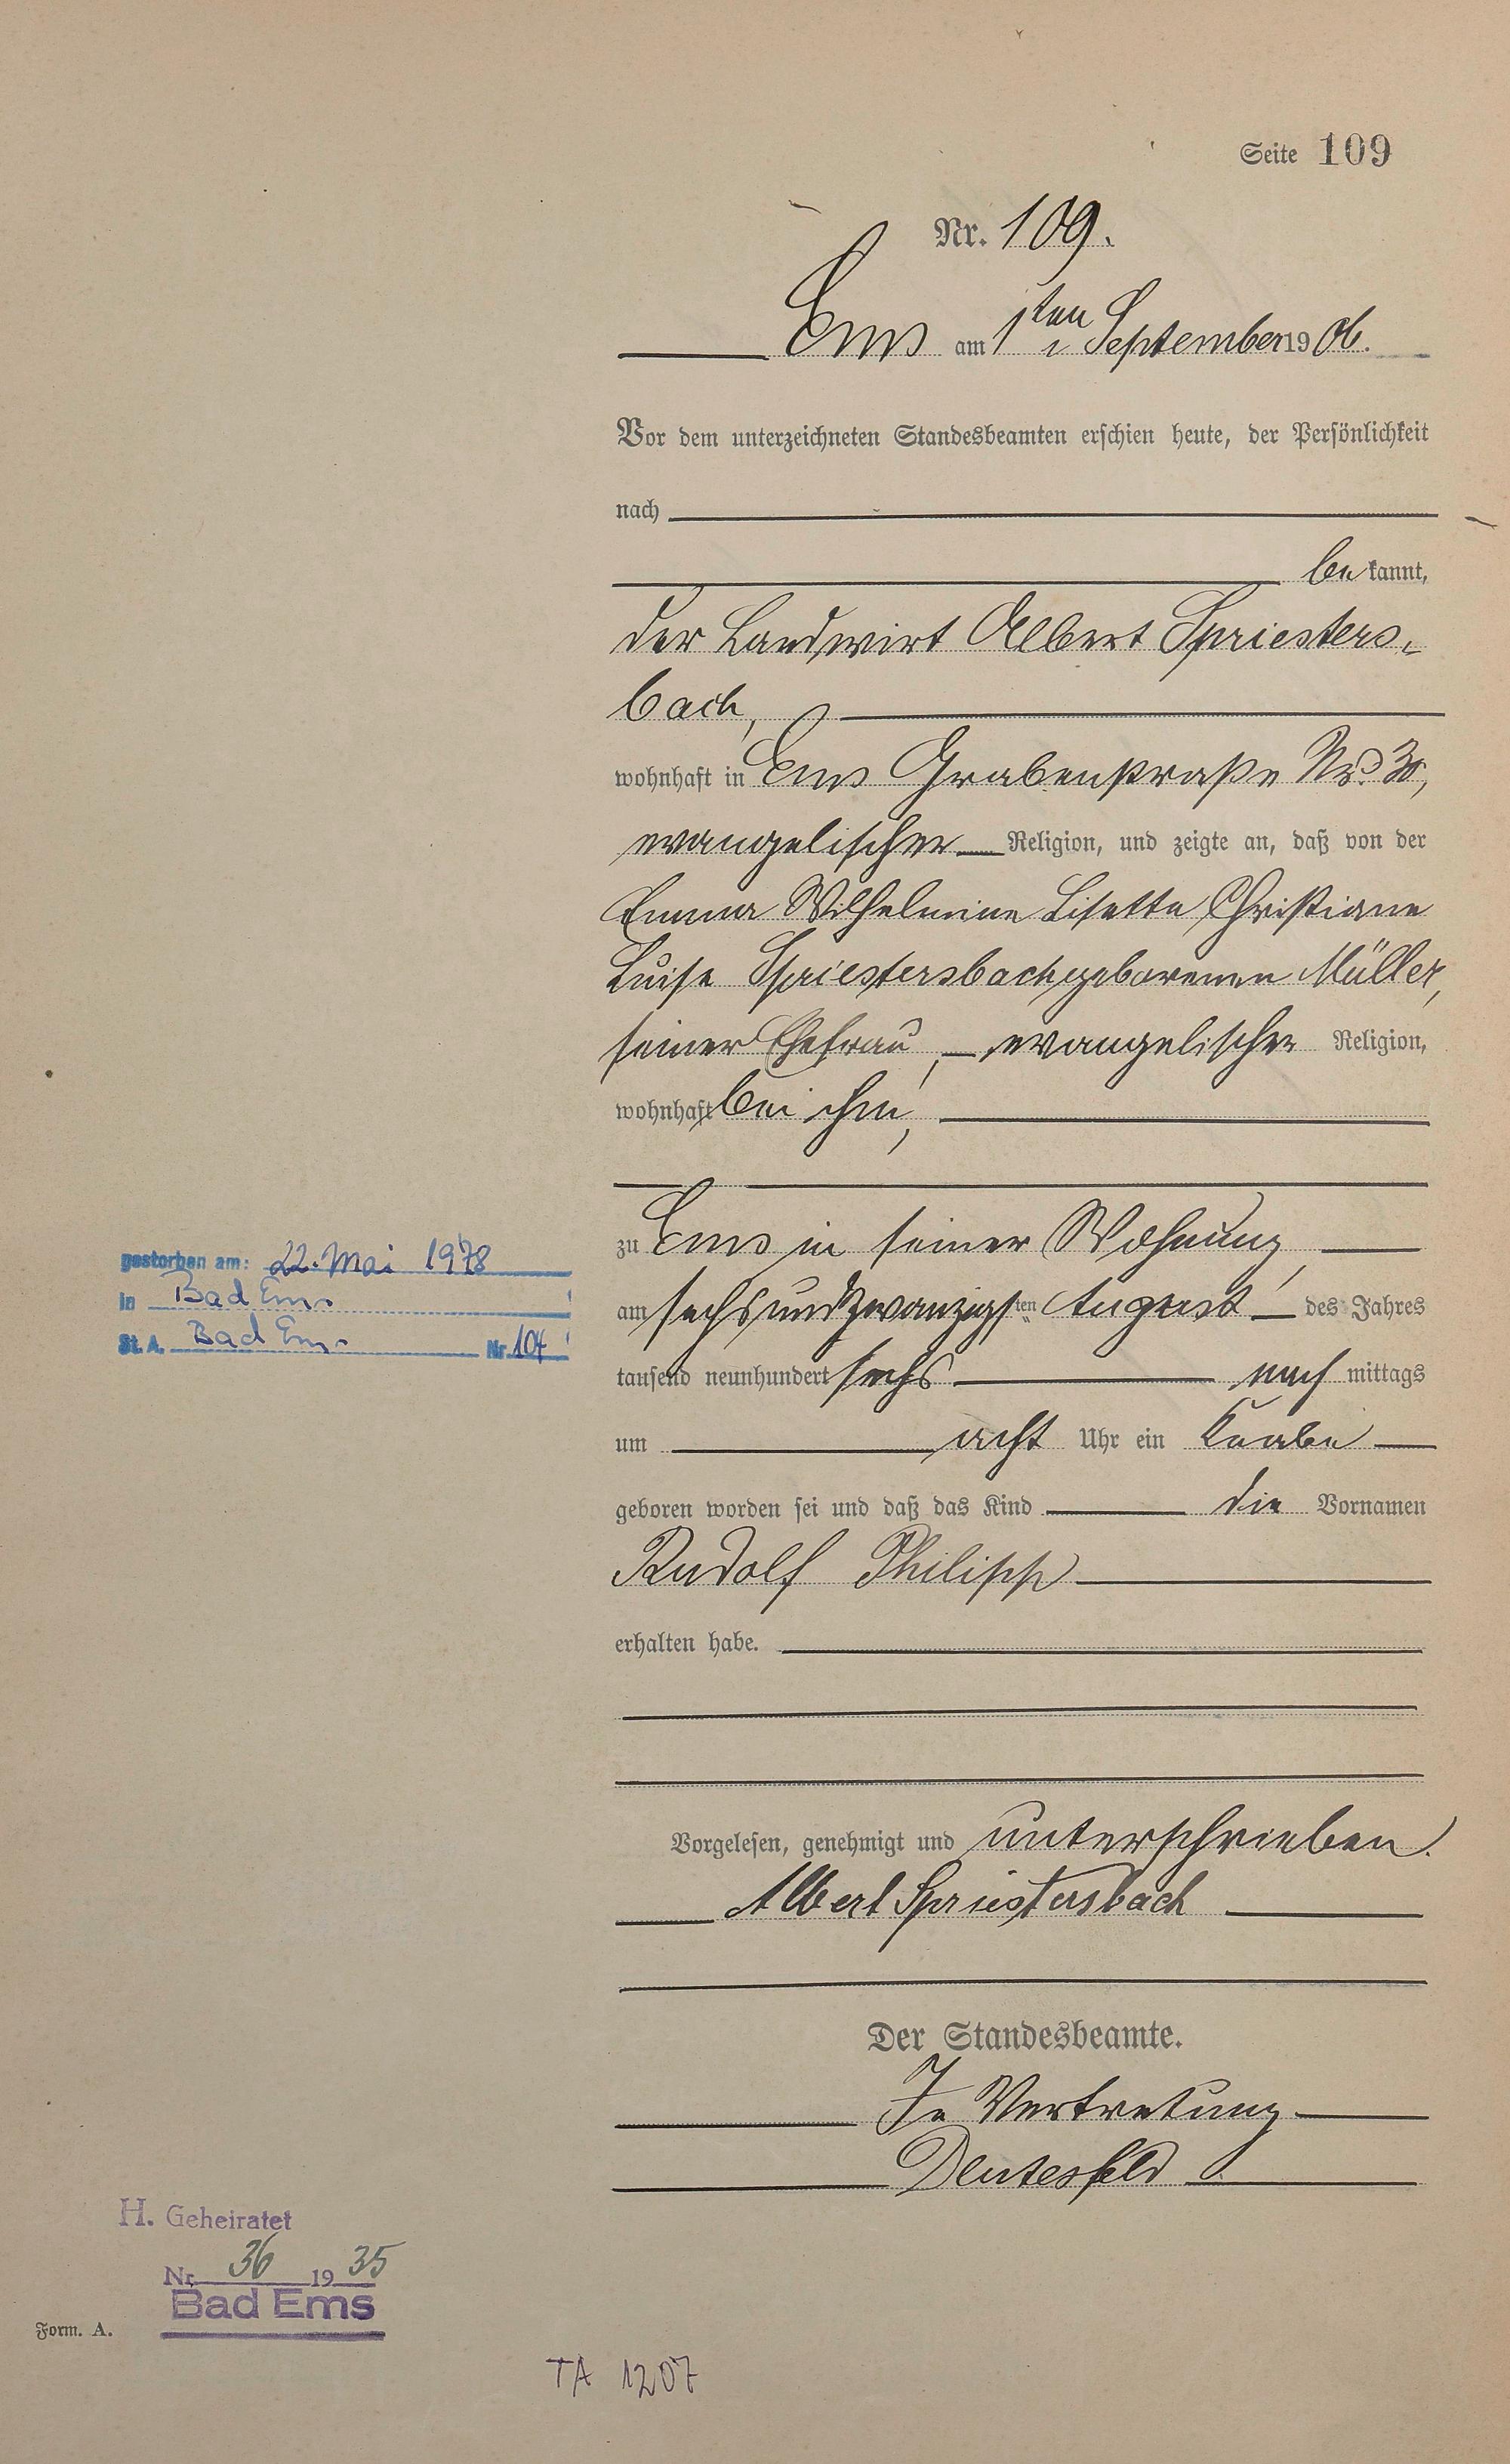 Seite 109
Nr. 109.
Ems am 1ten September 1906.
Vor dem unterzeichneten Standesbeamten erschien heute, der Persönlichkeit
nach
bekannt,
der Landwirt Albert Spriesters-
bach,
wohnhaft in Ems Grabenstraße Nro. 30,
evangelischer Religion, und zeigte an, daß von der
Emma Wilhelmine Lisette Christiane
Luise Spriestersbach geborenen Müller,
seiner Ehefrau, evangelischer Religion,
wohnhaft bei ihm,
zu Ems in seiner Wohnung,
am sechsundzwanzigsten August des Jahres
tausend neunhundert sechs nach mittags
um acht Uhr ein Knabe
geboren worden sei und daß das Kind die Vornamen
Rudolf Philipp
erhalten habe.
Vorgelesen, genehmigt und unterschrieben.
Albert Spriestersbach
Der Standesbeamte.
In Vertretung
gestorben am: 22. Mai 1978
in Bad Ems
St. A. Bad Ems Nr. 104
H. Geheiratet
Nr. 36 1935
Bad Ems
Form. A.
TA 1207